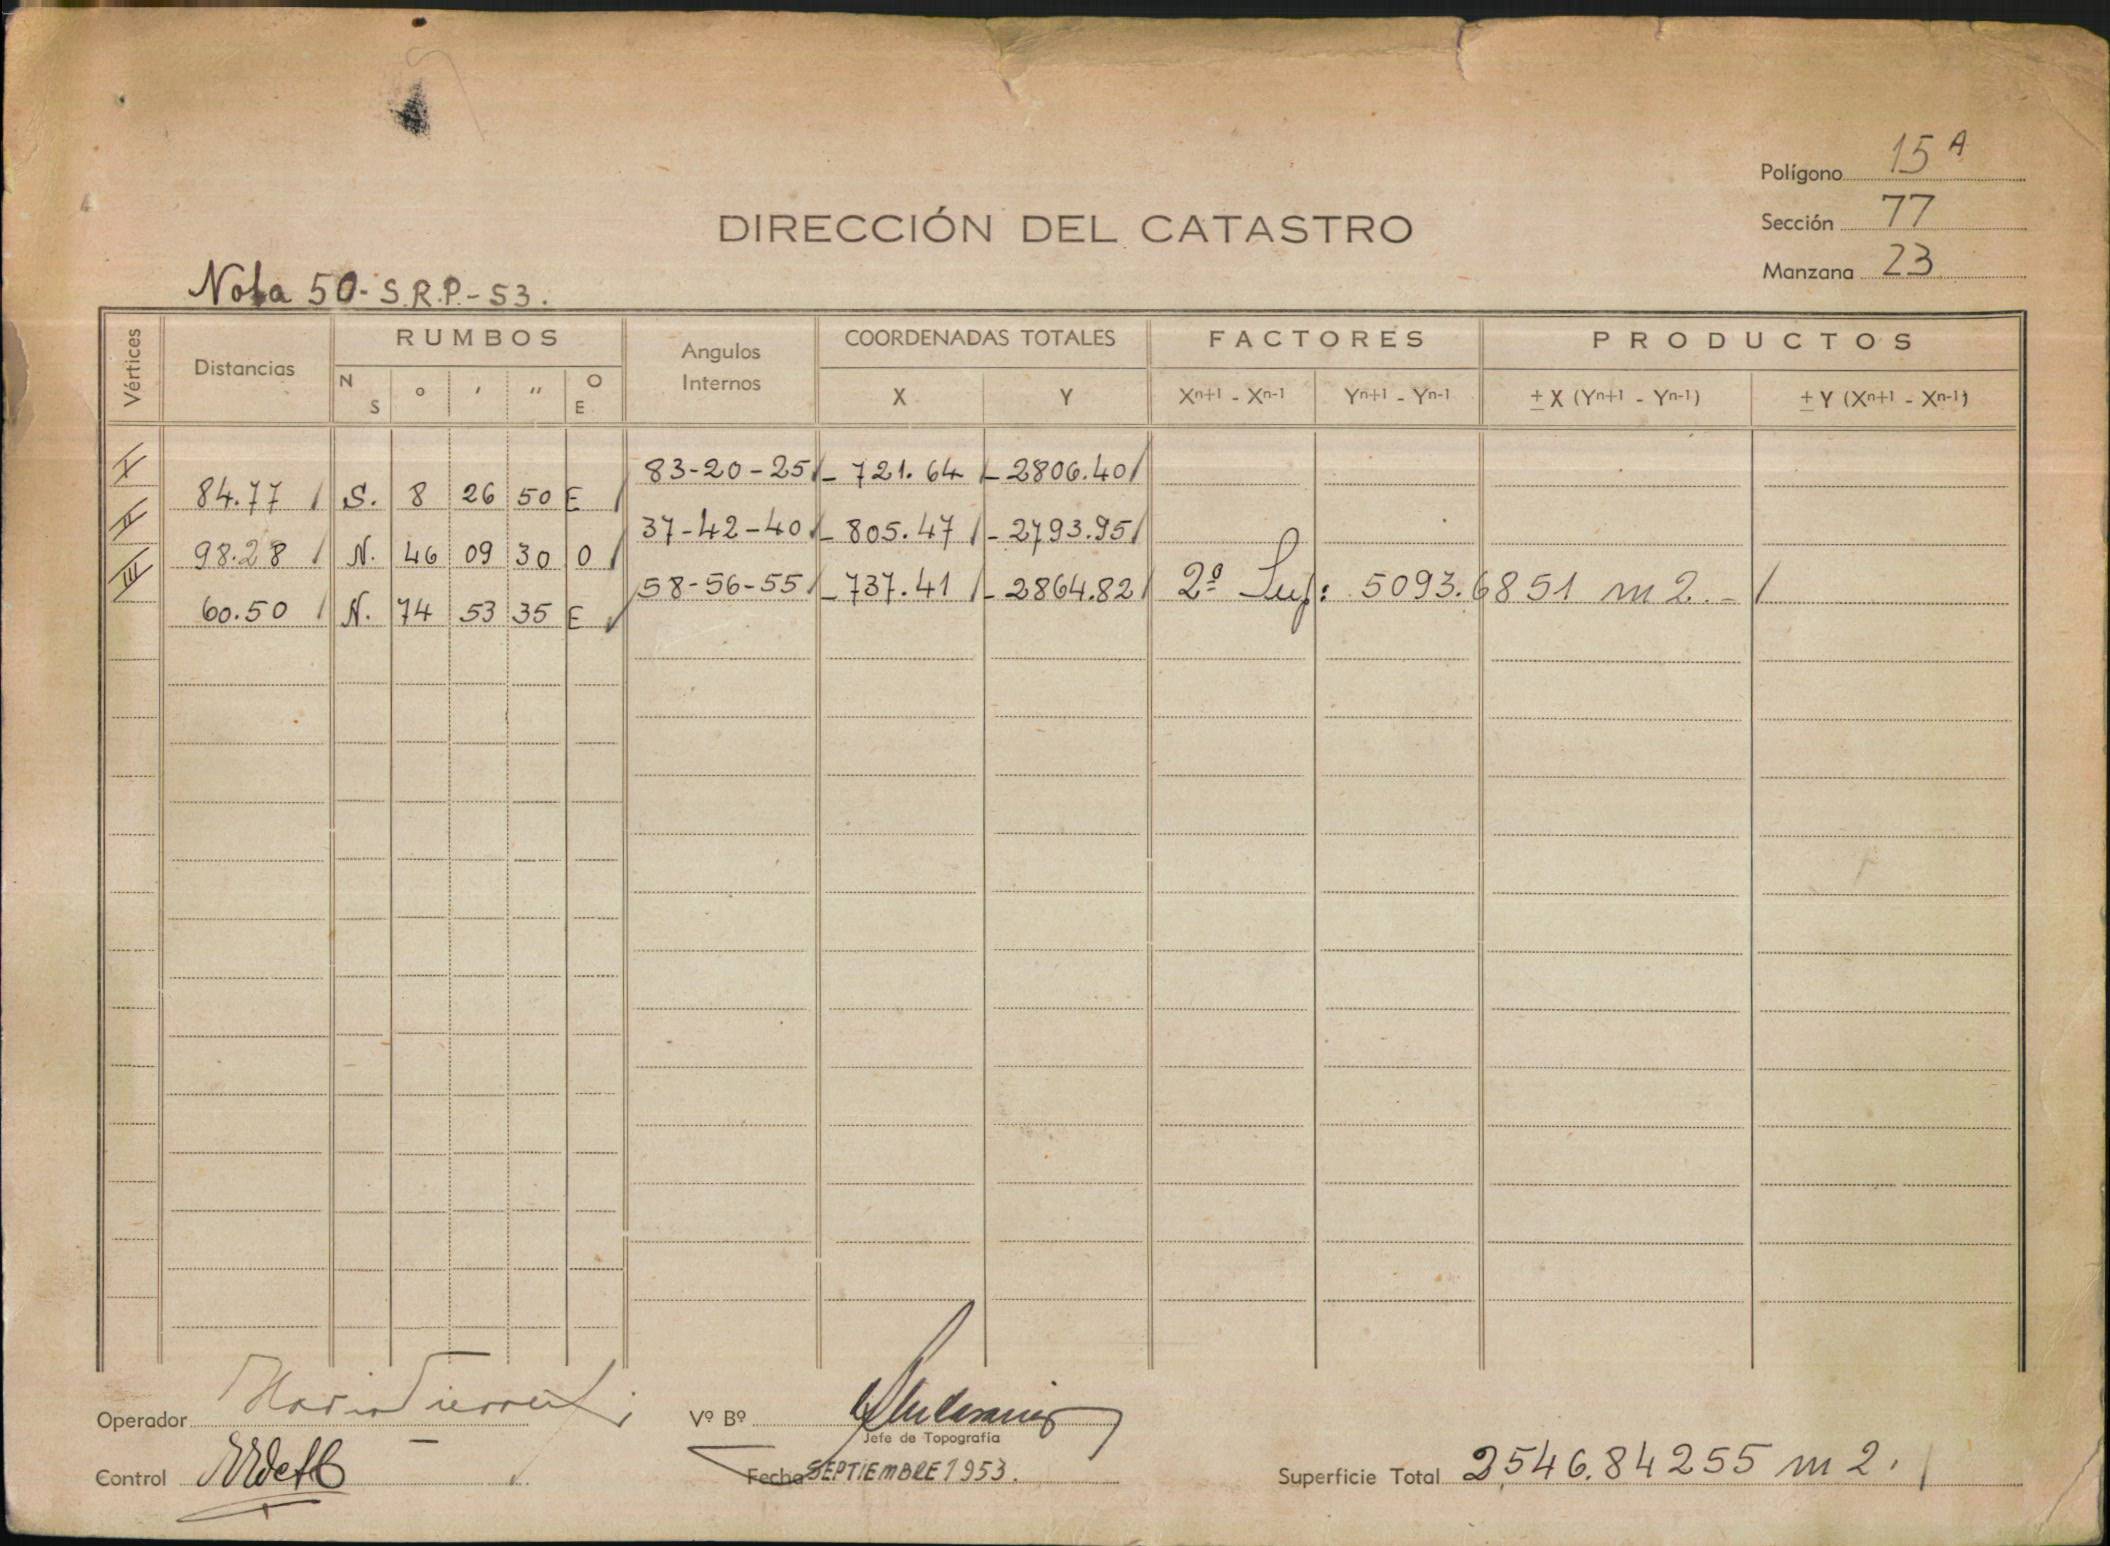 Polígono 15 A
DIRECCIÓN DEL CATASTRO
Sección 77
Manzana 23
Nota 50-S.R.P.-53.
Vértices
Distancias
RUMBOS
N S ° ′ ″ O E
Angulos Internos
COORDENADAS TOTALES
X Y
FACTORES
Xn+1 - Xn-1 Yn+1 - Yn-1
PRODUCTOS
± X (Yn+1 - Yn-1) ± Y (Xn+1 - Xn-1)
I 83-20-25 - 721.64 - 2806.40
84.77 S. 8 26 50 E
II 37-42-40 - 805.47 - 2793.95
98.28 N. 46 09 30 O
III 58-56-55 - 737.41 - 2864.82 2º Sup: 5093.6851 m2.-
60.50 N. 74 53 35 E
Operador
Vº Bº
Jefe de Topografía
Control
Fecha SEPTIEMBRE 1953.
Superficie Total 2546.84255 m2.